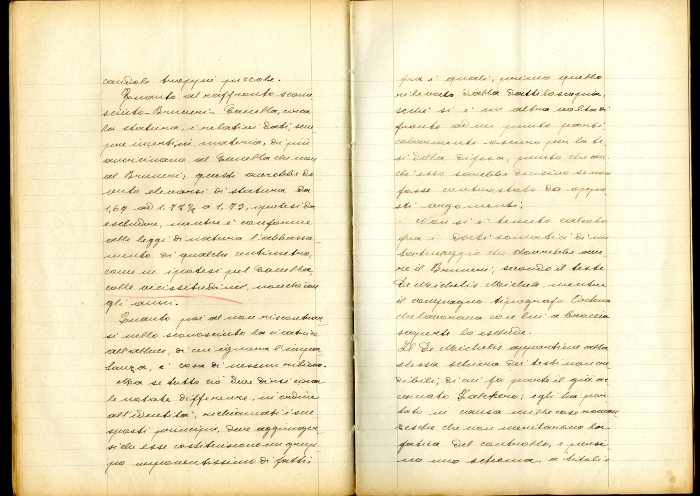 troppo piccole.
Quanto al raffronto scono-
sciuto-Bruneri-Canella, circa
la statura, i relativi dati, sem
pre incerti, in materia, di più
avvicinano al Canella che non
al Bruneri; questi avrebbe do
vuto elevarsi di statura da
1,69 ad 1.72½ a 1,73, ipotesi da
escludere, mentre è conforme
alle leggi di natura l'abbassa-
mento di qualche centimetro,
come in ipotesi pel Canella,
colle vicissitudini, nonchè con
gli anni.
Quanto poi al non riscontrar
si nello sconosciuto la cicatrice
all'alluce, di cui s'ignora l'impor
tanza, è cosa di nessun rilievo.
Ma se tutto ciò deve dirsi circa
le notate differenze, in ordine
all'identità, richiamati i sue
sposti principi, deve aggiunger
si che esse costituiscono un grup
po imponentissimo di fatti;
fra i quali, primo quello
rilevato dalla dattiloscopia,
sicchè si è un'altra volta di
fronte ad un punto parti
colarmente oscuro per la te
si della difesa, punto che an
ch'esso sarebbe decisivo se non
fosse contrastato da oppo
sti argomenti.
Non si è tenuto calcolo
fra i dati somatici di un
tatuaggio che dovrebbe ave
re il Bruneri, secondo il teste
De Michelis Michele, mentre
il compagno tipografo
che lavorava con lui a braccia
scoperte lo esclude.
Il De Michelis appartiene alla
stessa schiera dei testi non cre
dibili; di cui fa parte il già ac
cennato egli ha por
tato in causa molte cose roman
zesche che non meritavano la
fatica del controllo, e persi
no uno schema, a titolo